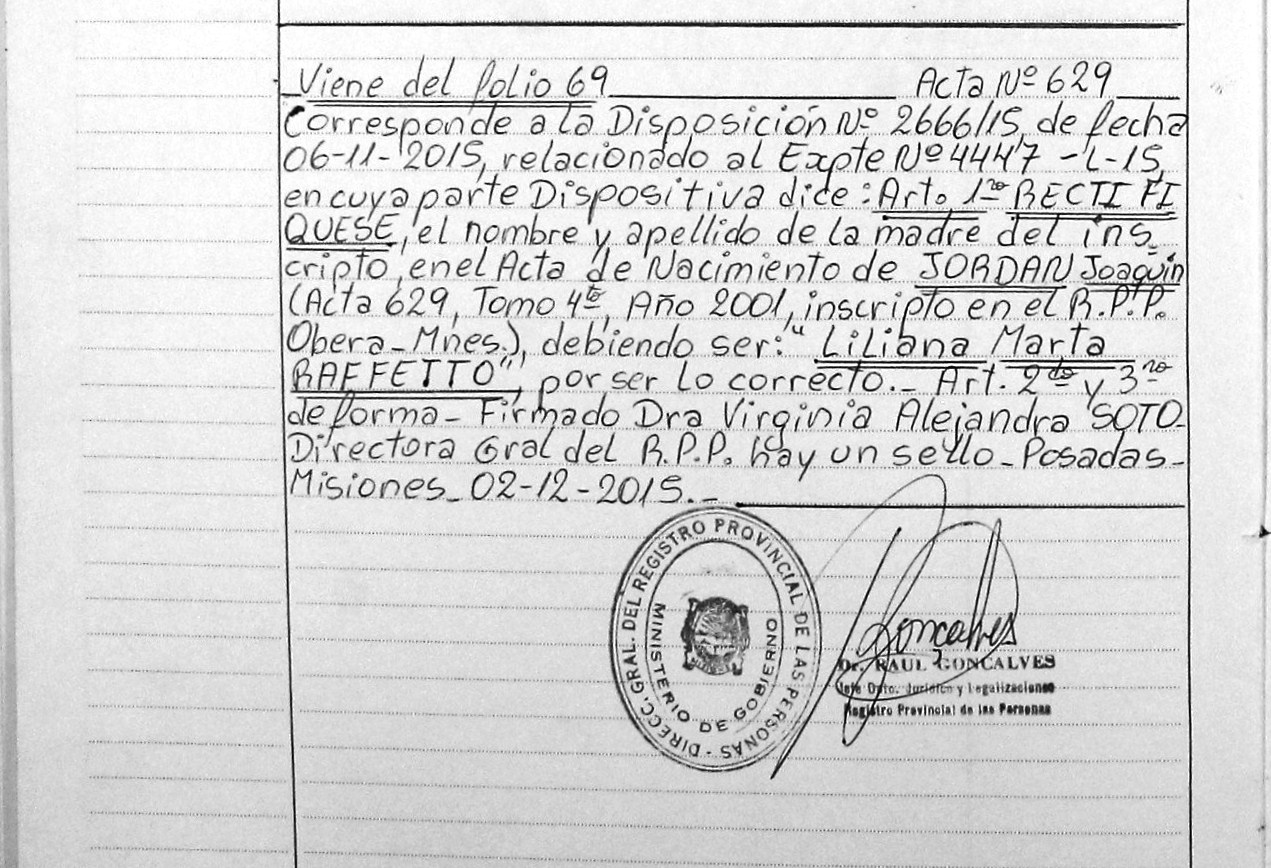 Viene del folio 69 Acta Nº 629
Corresponde a la Disposición Nº 2666/15, de fecha
06-11-2015, relacionado al Expte Nº 4447 -L-15,
en cuya parte Dispositiva dice: Art. 1ro RECTIFI
QUESE, el nombre y apellido de la madre del ins_
cripto, en el Acta de Nacimiento de JORDAN Joaquín
(Acta 629, Tomo 4to, Año 2001, inscripto en el R.P.P.
Obera_Mnes.), debiendo ser: "Liliana Marta
RAFFETTO", por ser lo correcto._ Art. 2do y 3ro
de forma_ Firmado Dra Virginia Alejandra SOTO_
Directora Gral del R.P.P. hay un sello_Posadas_
Misiones_02-12-2015._
DIRECC. GRAL. DEL REGISTRO PROVINCIAL DE LAS PERSONAS -
MINISTERIO DE GOBIERNO
Goncalves
Dr. RAUL GONCALVES
Jefe Dpto. Jurídico y Legalizaciones
Registro Provincial de las Personas